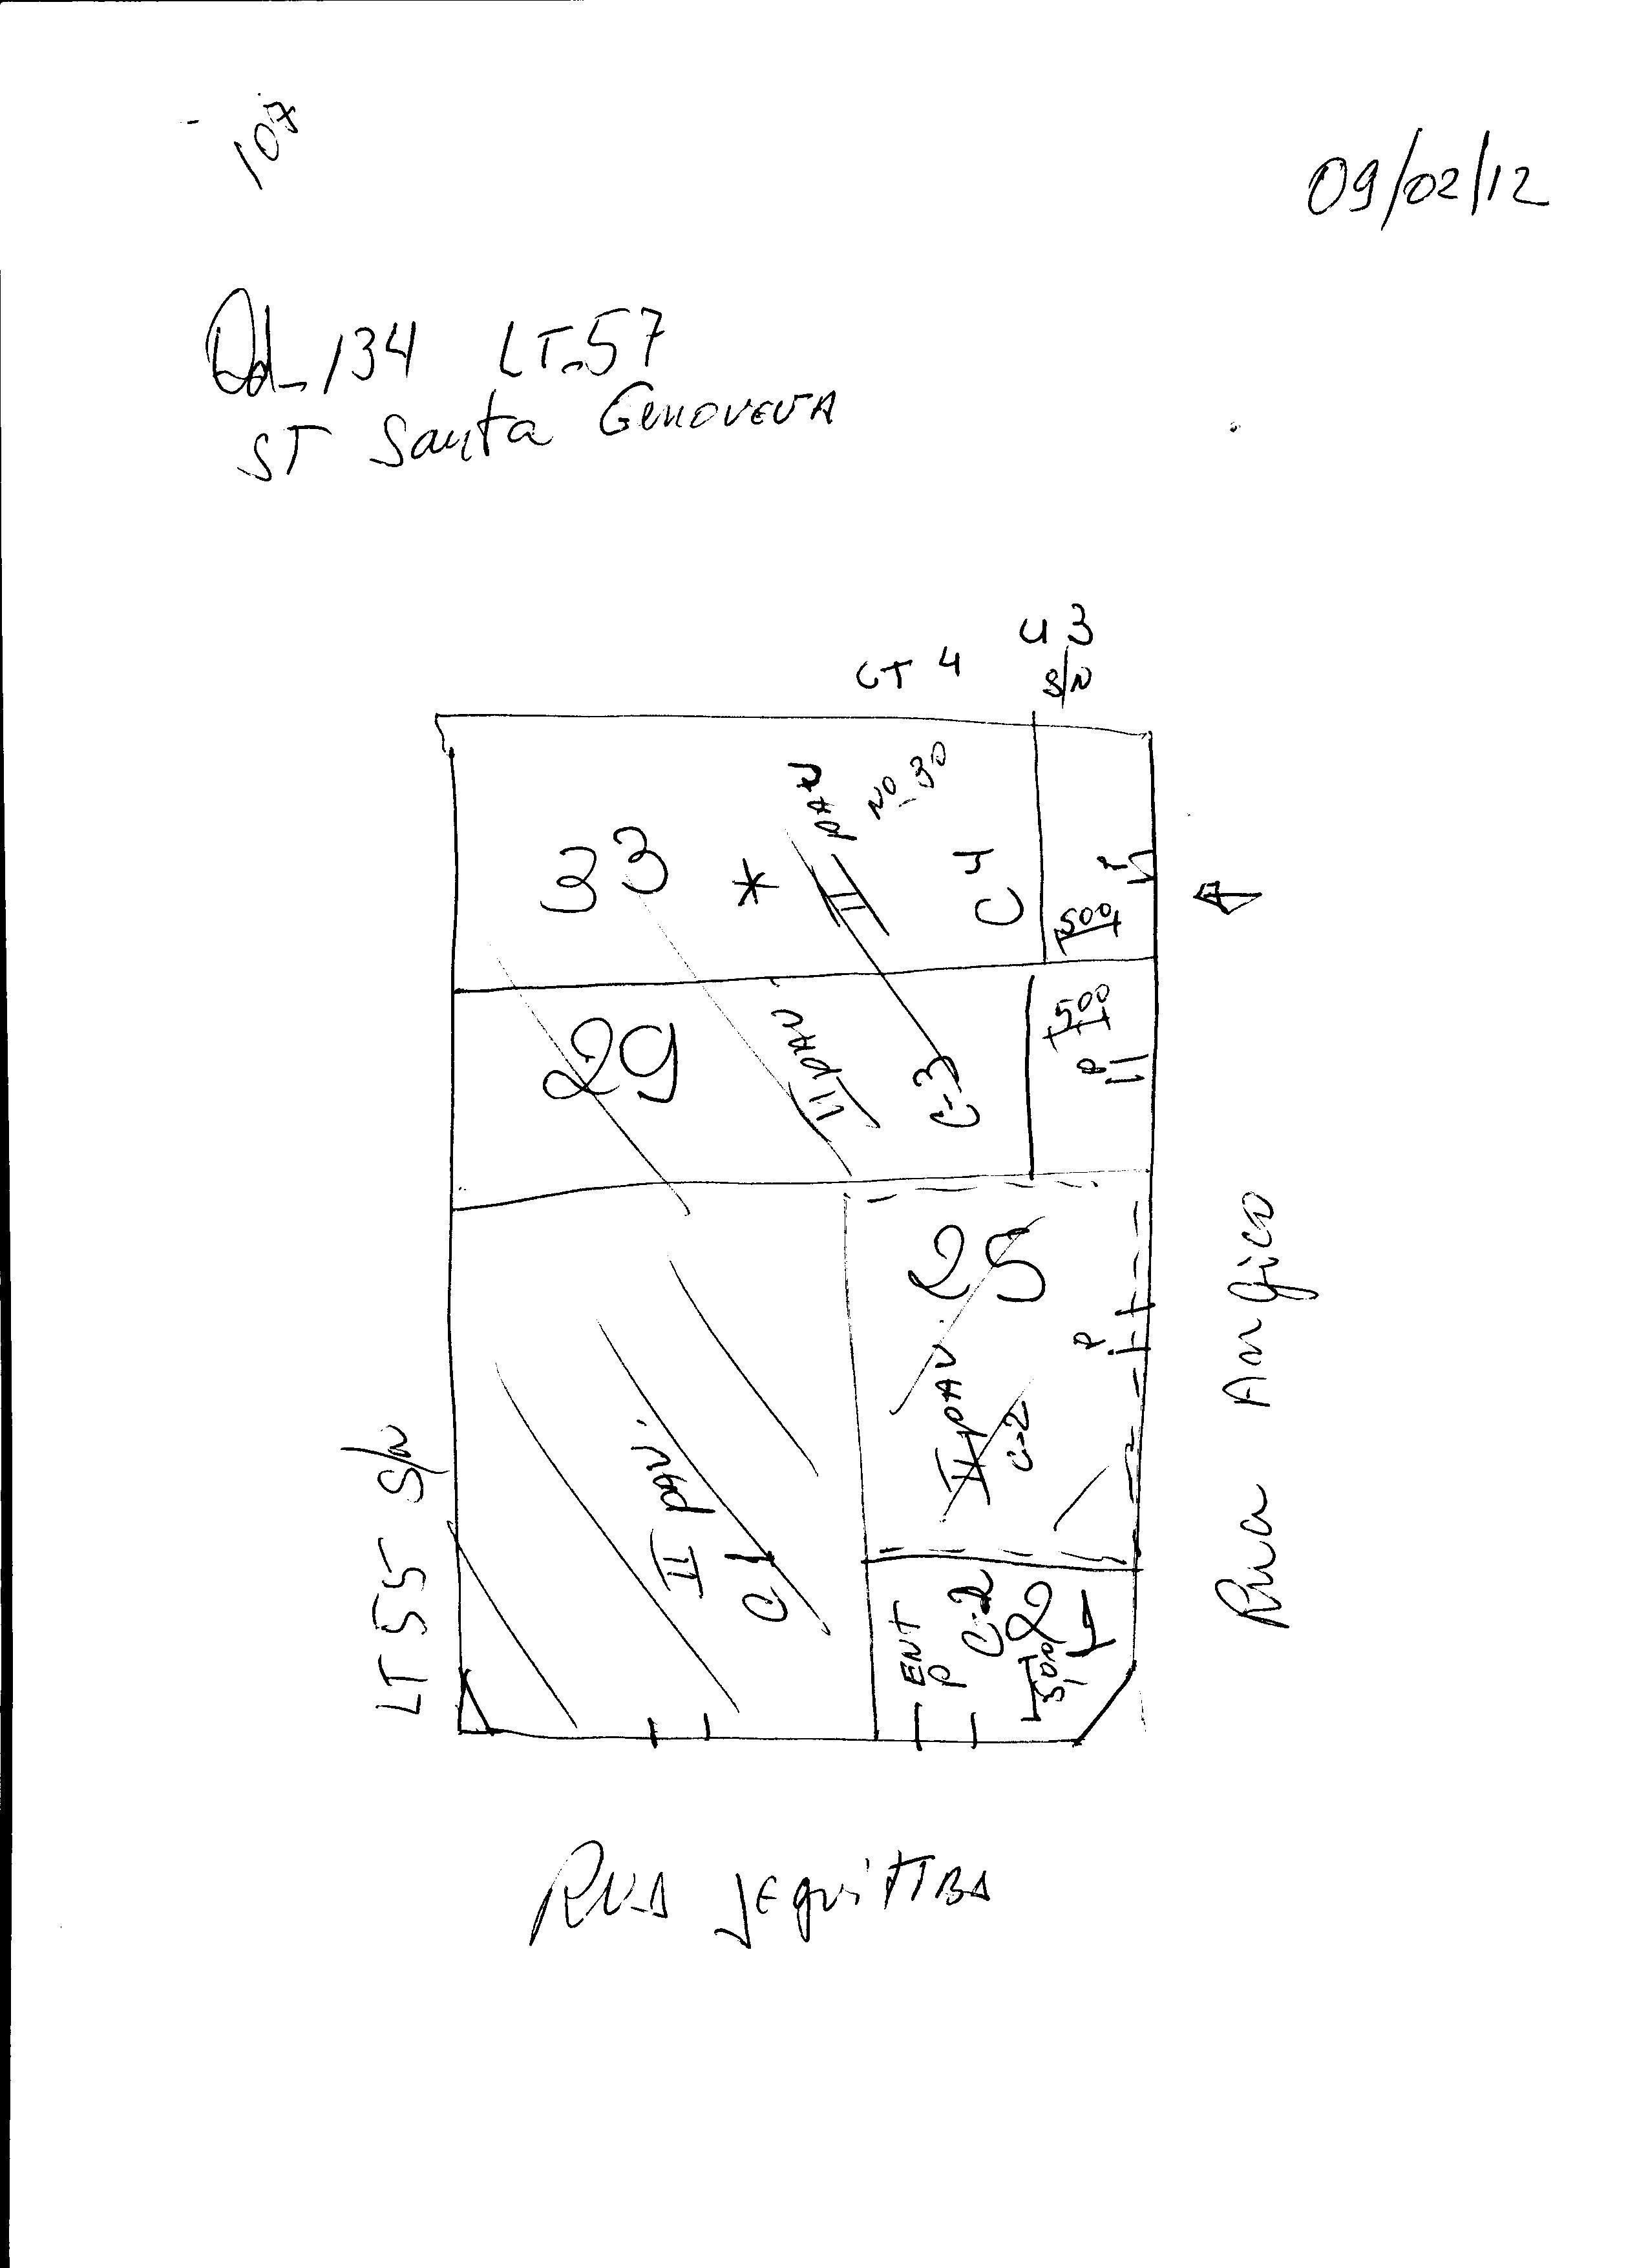 107
09/02/12
Qd_134 LT.57
ST Santa GENOVEVA
43
LT 4
S/N
33 *
II PAV
NO_30
C4
P
500
29
II PAV.
C-3
500
P
25
II PAV.
C-2
P
LT 55 S/N
II pav.
C1
ENT
P
C-2
5,00
Rua Angico
RUA JEQUITIBA